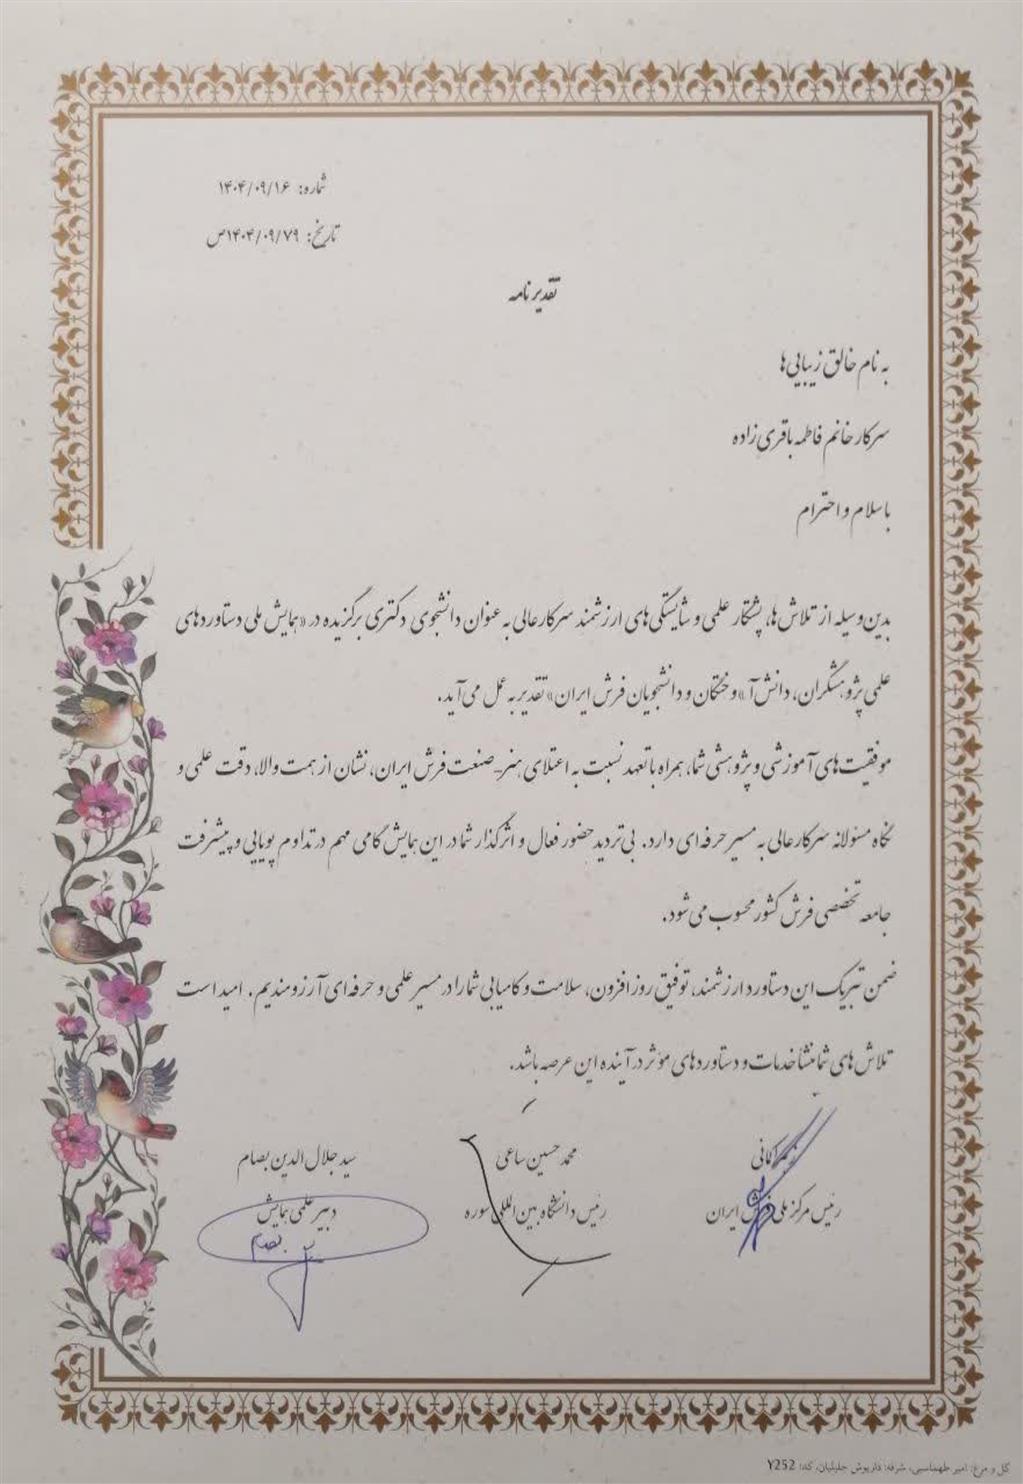 شماره: ۱۴۰۴/۰۹/۱۶
تاریخ: ۱۴۰۴/۰۹/۷۹ص
تقدیرنامه
به نام خالق زیبایی‌ها
سرکار خانم فاطمه باقری زاده
با سلام و احترام
بدین وسیله از تلاش‌ها، پشتکار علمی و شایستگی‌های ارزشمند سرکارعالی به عنوان دانشجوی دکتری برگزیده در «همایش ملی دستاوردهای
علمی پژوهشگران، دانش‌آ»وختگان و دانشجویان فرش ایران» تقدیر به عمل می‌آید.
موفقیت‌های آموزشی و پژوهشی شما، همراه با تعهد نسبت به اعتلای هنر-صنعت فرش ایران، نشان از همت والا، دقت علمی و
نگاه مسئولانه سرکارعالی به مسیر حرفه‌ای دارد. بی‌تردید حضور فعال و اثرگذار شما در این همایش گامی مهم در تداوم پویایی و پیشرفت
جامعه تخصصی فرش کشور محسوب می‌شود.
ضمن تبریک این دستاورد ارزشمند، توفیق روزافزون، سلامت و کامیابی شما را در مسیر علمی و حرفه‌ای آرزومندیم. امید است
تلاش‌های شما منشأ خدمات و دستاوردهای مؤثر در آینده این عرصه باشد.
کمانی محمد حسین ساعی سید جلال‌الدین بصام
رئیس مرکز ملی فرش ایران رئیس دانشگاه بین‌المللی سوره دبیر علمی همایش
بصام
گل و مرغ: امیر طهماسبی، شرفه: داریوش جلیلیان، کد: Y252